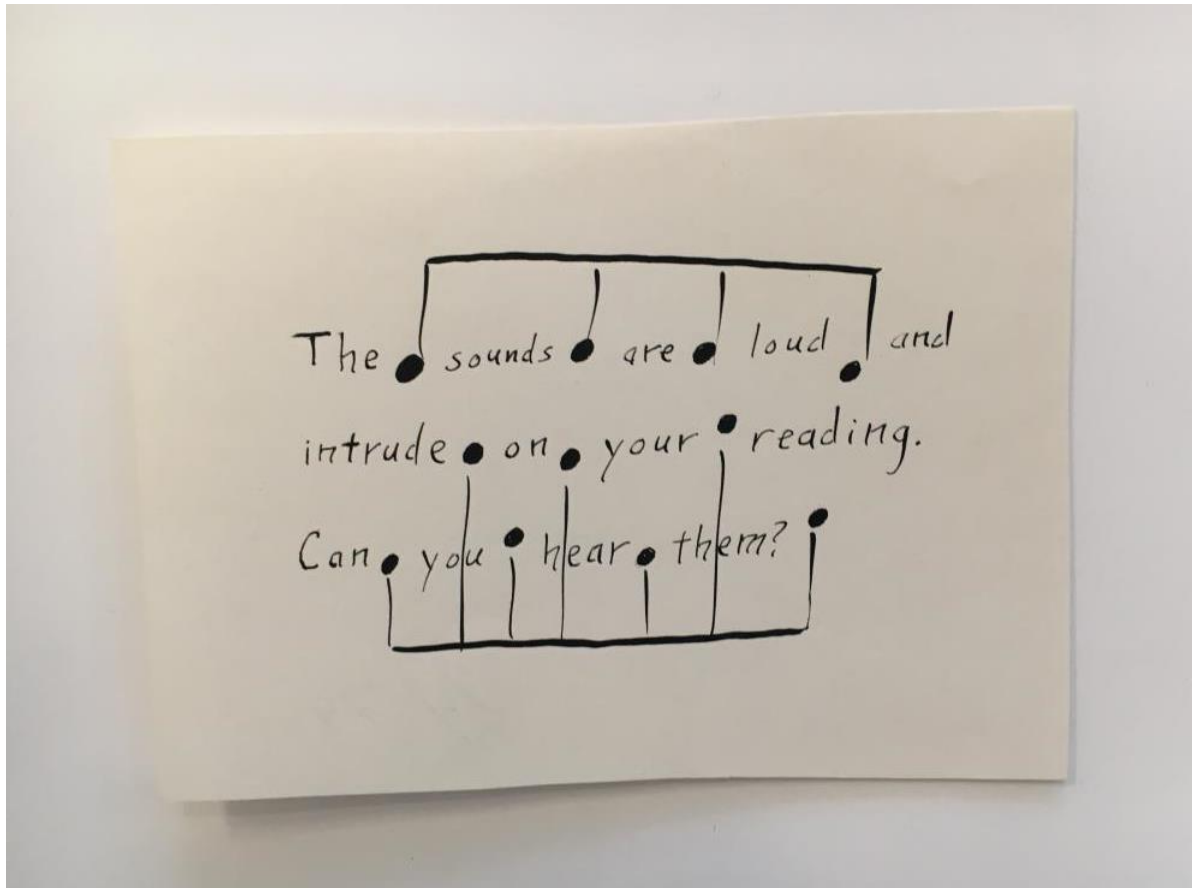 The sounds are loud and
intrude on your reading.
Can you hear them?